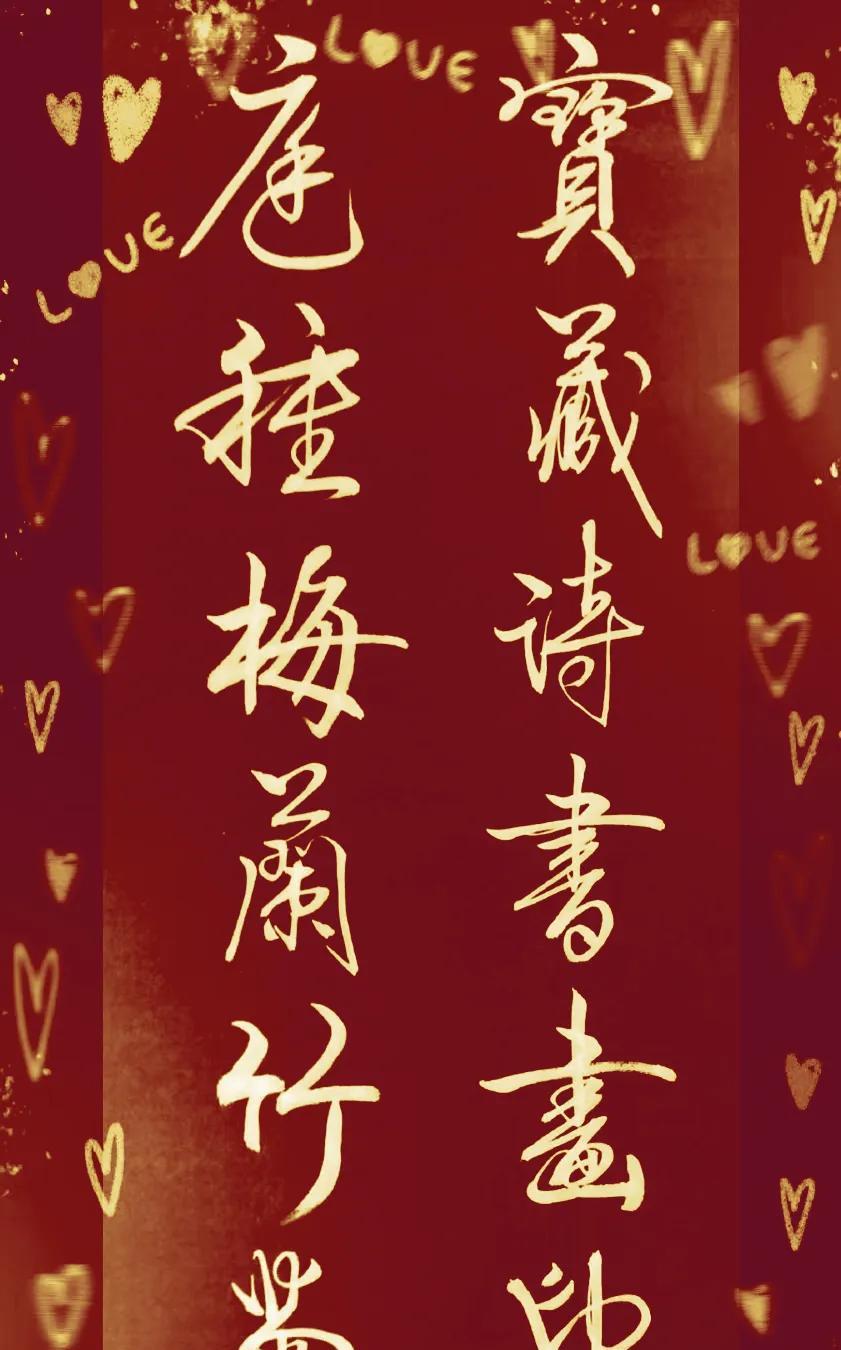 寶藏詩書畫印
庭種梅蘭竹
LOVE
LOVE
LOVE